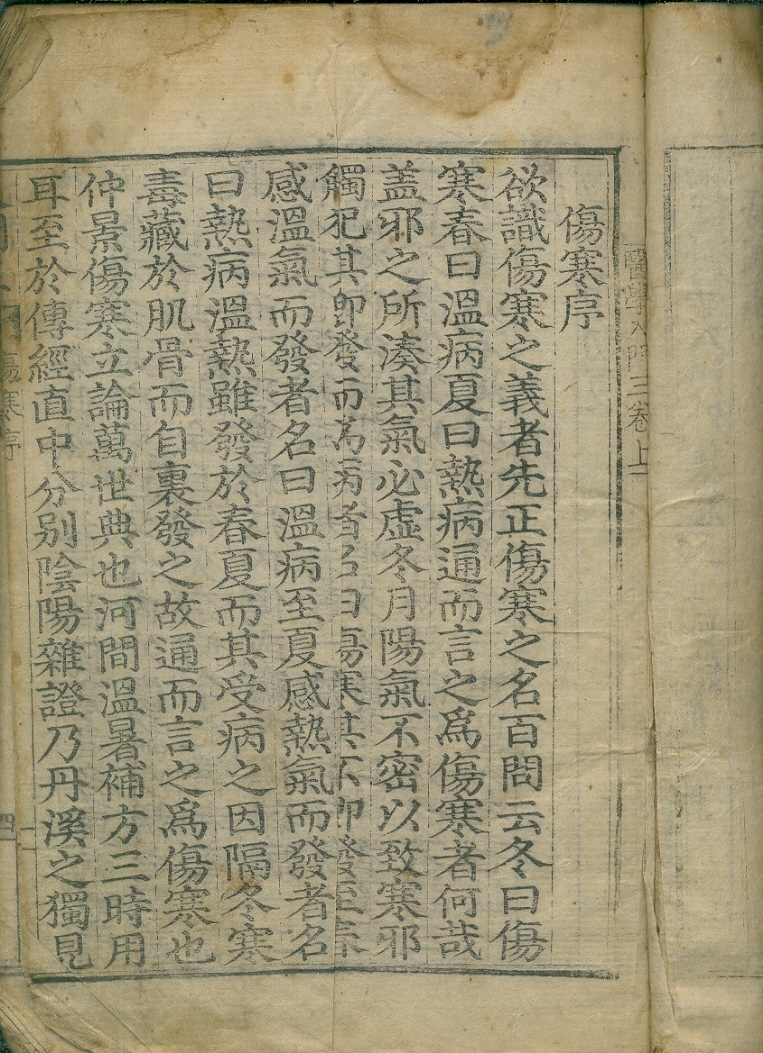 醫學入門三卷上
傷寒序
欲識傷寒之義者先正傷寒之名百問云冬曰傷
寒春曰溫病夏曰熱病通而言之爲傷寒者何哉
盖邪之所湊其氣必虛冬月陽氣不密以致寒邪
觸犯其卽發而爲病者名曰傷寒其不卽發至春
感溫氣而發者名曰溫病至夏感熱氣而發者名
曰熱病溫熱雖發於春夏而其受病之因隔冬寒
毒藏於肌骨而自裏發之故通而言之爲傷寒也
仲景傷寒立論萬世典也河間溫暑補方三時用
耳至於傳經直中分別陰陽雜證乃丹溪之獨見
傷寒序
四